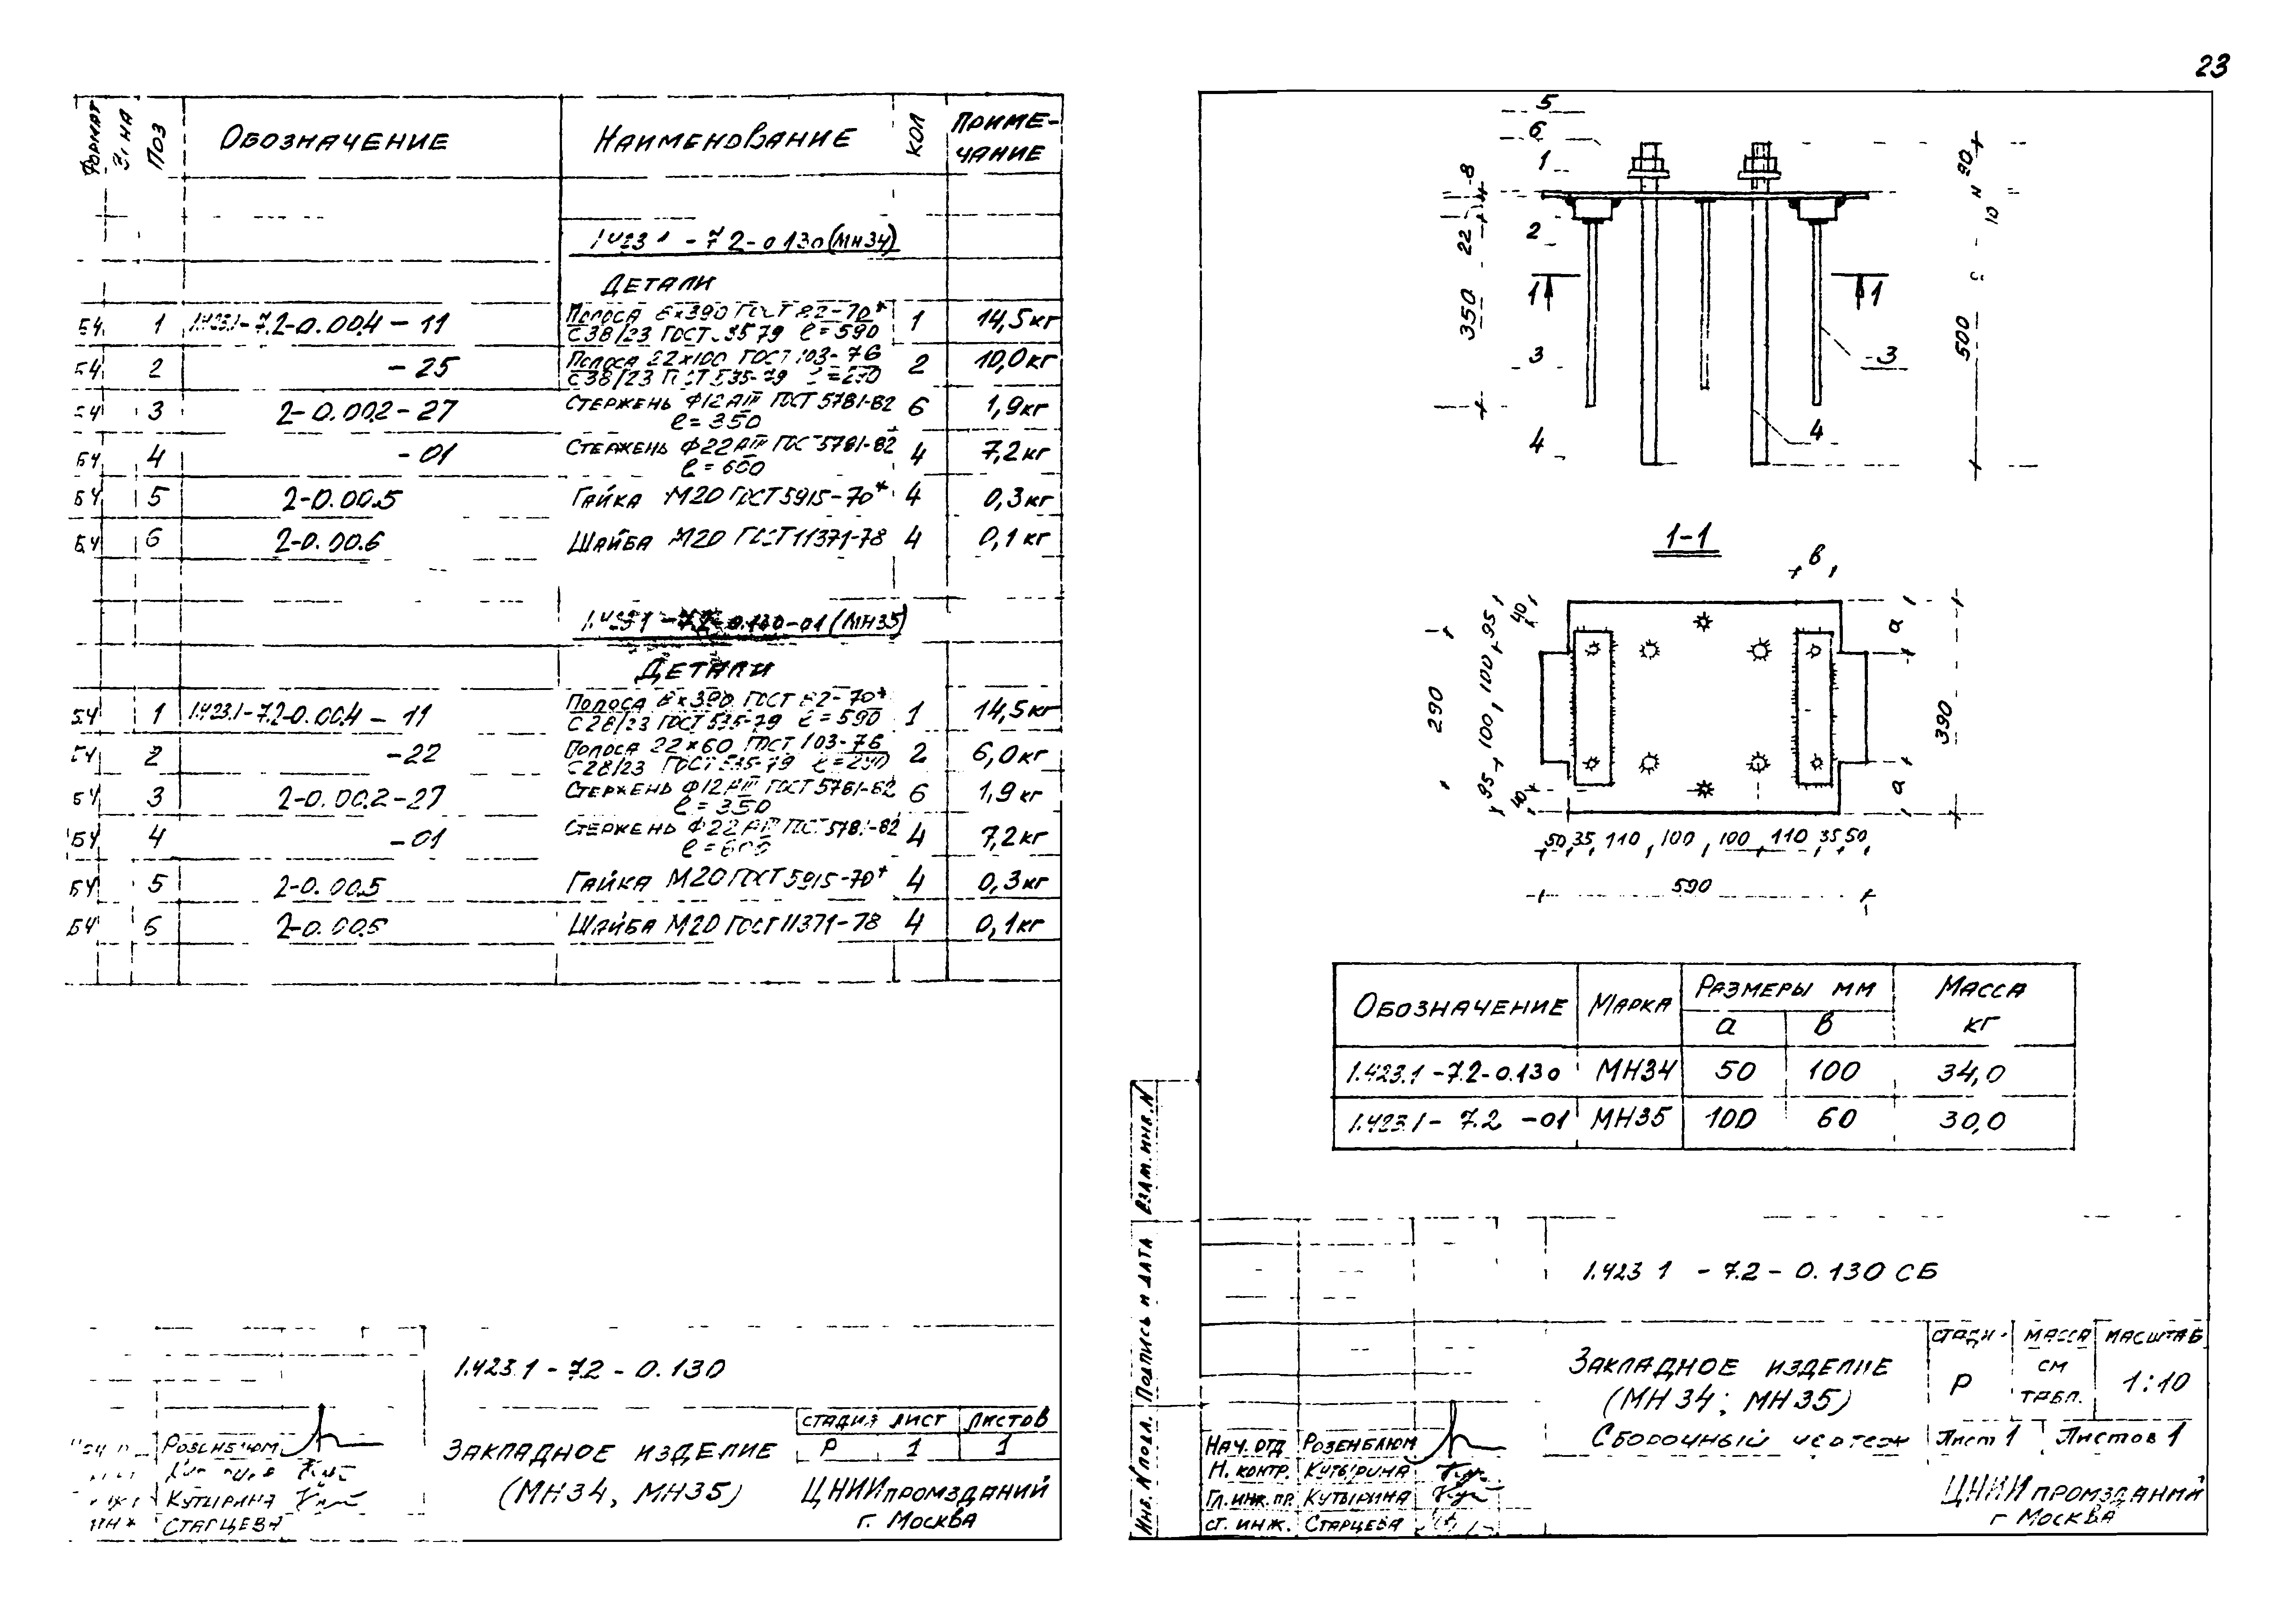 23
ФОРМАТ ПОЗ ОБОЗНАЧЕНИЕ НАИМЕНОВАНИЕ КОЛ ПРИМЕ-
ЧАНИЕ
1.423 1 - 7.2-0.130 (МН34)
ДЕТАЛИ
БЧ 1 1.423.1-7.2-0.00.4-11 Полоса 8×390 ГОСТ 82-70* 1 14,5кг
С38/23 ГОСТ 535 79 ℓ=590
БЧ 2 -25 Полоса 22×100 ГОСТ 103-76 2 10,0кг
С38/23 ГОСТ 535-79 ℓ=290
БЧ 3 2-0.00.2-27 СТЕРЖЕНЬ Ф12АIII ГОСТ 5781-82 6 1,9кг
ℓ=350
БЧ 4 -01 СТЕРЖЕНЬ Ф22АIII ГОСТ 5781-82 4 7,2кг
ℓ=600
БЧ 5 2-0.00.5 ГАЙКА М20 ГОСТ 5915-70* 4 0,3кг
БЧ 6 2-0.00.6 ШАЙБА М20 ГОСТ 11371-78 4 0,1кг
1.423 1 - 7.2-0.130-01 (МН35)
ДЕТАЛИ
БЧ 1 1.423.1-7.2-0.00.4-11 Полоса 8×390 ГОСТ 82-70* 1 14,5кг
С28/23 ГОСТ 535-79 ℓ=590
БЧ 2 -22 Полоса 22×60 ГОСТ 103-76 2 6,0кг
С28/23 ГОСТ 535-79 ℓ=290
БЧ 3 2-0.00.2-27 СТЕРЖЕНЬ Ф12АIII ГОСТ 5781-82 6 1,9кг
ℓ=350
БЧ 4 -01 СТЕРЖЕНЬ Ф22АIII ГОСТ 5781-82 4 7,2кг
ℓ=600
БЧ 5 2-0.00.5 ГАЙКА М20 ГОСТ 5915-70* 4 0,3кг
БЧ 6 2-0.00.5 ШАЙБА М20 ГОСТ 11371-78 4 0,1кг
1.423.1 - 7.2 - 0.130
ЗАКЛАДНОЕ ИЗДЕЛИЕ
(МН34, МН35)
СТАДИЯ ЛИСТ ЛИСТОВ
Р 1 1
ЦНИИПРОМЗДАНИЙ
г. МОСКВА
РОЗЕНБЛЮМ
КУТЫРИНА
СТАРЦЕВА
5
6
1
2
3
4
8
22
350
1 1
3
4
500
1-1
в
40
95
100
100
95
40
290
а
а
390
50 35 110 100 100 110 35 50
590
ОБОЗНАЧЕНИЕ МАРКА РАЗМЕРЫ ММ МАССА
КГ
а в
1.423.1-7.2-0.130 МН34 50 100 34,0
1.423.1- 7.2 -01 МН35 100 60 30,0
ИНВ.N ПОДЛ. ПОДПИСЬ И ДАТА ВЗАМ.ИНВ.N
1.423 1 - 7.2 - 0.130 СБ
ЗАКЛАДНОЕ ИЗДЕЛИЕ
(МН 34; МН35)
СБОРОЧНЫЙ чертеж
МАССА МАСШТАБ
Р СМ
ТАБЛ. 1:10
Лист 1 Листов 1
ЦНИИПРОМЗДАНИЙ
г МОСКВА
НАЧ. ОТД РОЗЕНБЛЮМ
Н. КОНТР. КУТЫРИНА
ГЛ.ИНЖ.ПР. КУТЫРИНА
СТ. ИНЖ. СТАРЦЕВА